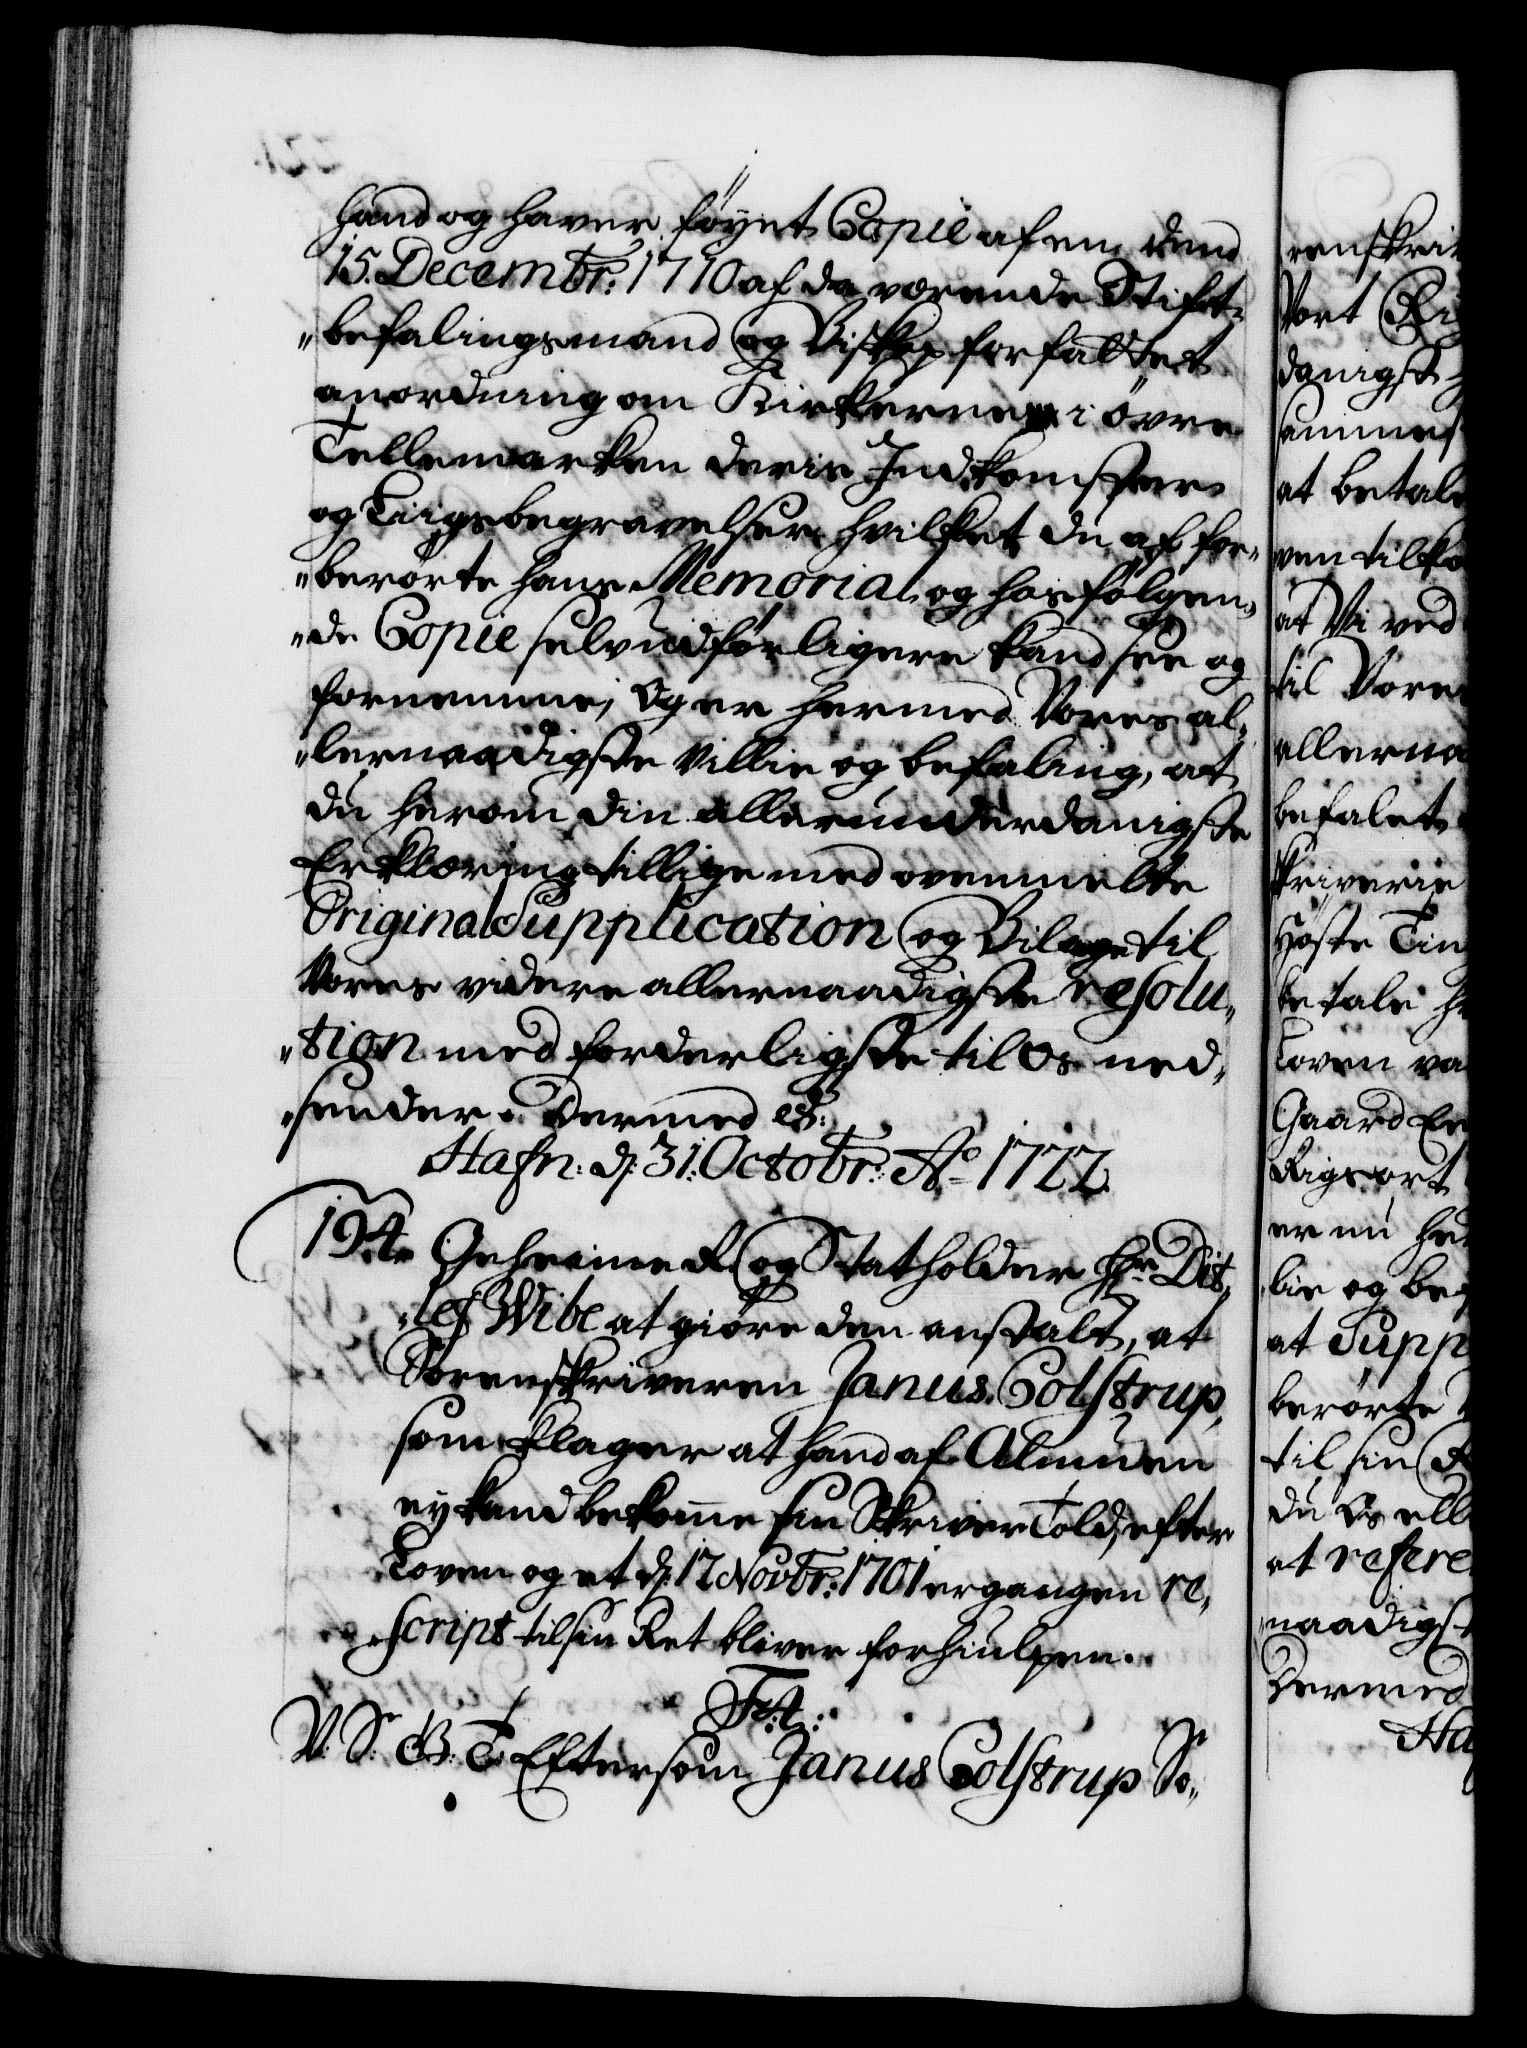 hand og haver föyet Copie af en dend
15. Decembr: 1710 af da værende Stift-
"befalingsmand og Biskop forfattet
anordning om Kirkerne i övre
Tellemarken deris Indkomster
og Liigsbegravelser, hvilket du af for-
"berörte hans Memorial og hosfölgen-
"de Copie selv udförligere kand see og
fornemme; Og er hermed Vores al-
"lernaadigste Villie og befaling, at
du herom din allerunderdanigste
Erklæring tillige med ovenmelte
Original Supplication og Bilage til
Vores videre allernaadigste resolu-
"tion med forderligste til Os ned-
"sender. Dermed etc:
Hafn: d: 31. Octobr: Ao 1722.
194. Geheime R. og Statholder Hr. Dit-
"lef Wibe at giöre den anstalt, at
Sorenskriveren Janus Colstrup,
som klager at hand af Almuen
ey kand bekome sin Skriver Told, efter
Loven og et d: 12 Novbr: 1701 ergangen re-
"script til sin Ret bliver forhiulpen.
F. 4.:
V. S. G. T. Eftersom Janus Colstrup So-
renskri
Vort
danigst
sammes
at betale
ven tilko
at Vi ved
til Vore
allerna
befalet
skriverie
Höste Tin
betale
Loven va
Gaard
Rigsort
er nu her
lie og be
at Supp
berörte
til sin R
du Os
at refere
naadigst
Dermed
Haf